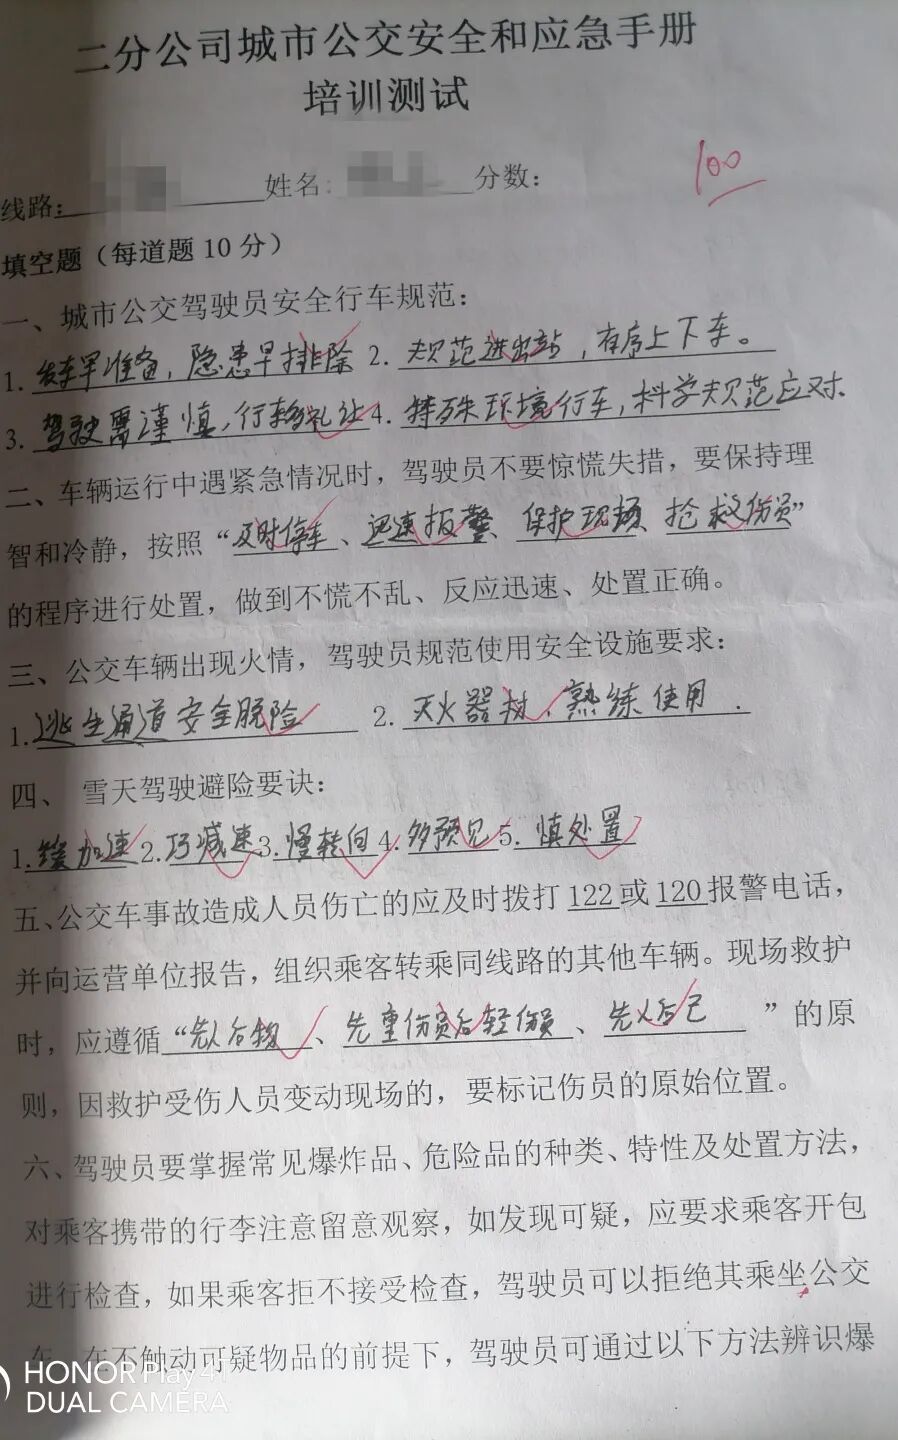 二分公司城市公交安全和应急手册
培训测试
100
线路: 姓名: 分数:
填空题（每道题10分）
一、城市公交驾驶员安全行车规范:
1. 发车早准备，隐患早排除 2. 规范进出站，有序上下车。
3. 驾驶需谨慎，行车礼让 4. 特殊环境行车，科学规范应对.
二、车辆运行中遇紧急情况时，驾驶员不要惊慌失措，要保持理
智和冷静，按照“及时停车、迅速报警 保护现场 抢救伤员”
的程序进行处置，做到不慌不乱、反应迅速、处置正确。
三、公交车辆出现火情，驾驶员规范使用安全设施要求:
1. 逃生通道安全脱险 2. 灭火器材，熟练使用.
四、雪天驾驶避险要诀:
1. 缓加速 2. 巧减速 3. 慢转向 4. 多预见 5. 慎处置
五、公交车事故造成人员伤亡的应及时拨打 122 或 120 报警电话，
并向运营单位报告，组织乘客转乘同线路的其他车辆。现场救护
时，应遵循“先人后物、先重伤员后轻伤员、先人后己”的原
则，因救护受伤人员变动现场的，要标记伤员的原始位置。
六、驾驶员要掌握常见爆炸品、危险品的种类、特性及处置方法，
对乘客携带的行李注意留意观察，如发现可疑，应要求乘客开包
进行检查，如果乘客拒不接受检查，驾驶员可以拒绝其乘坐公交
车。在不触动可疑物品的前提下，驾驶员可通过以下方法辨识爆
HONOR Play 4T
DUAL CAMERA